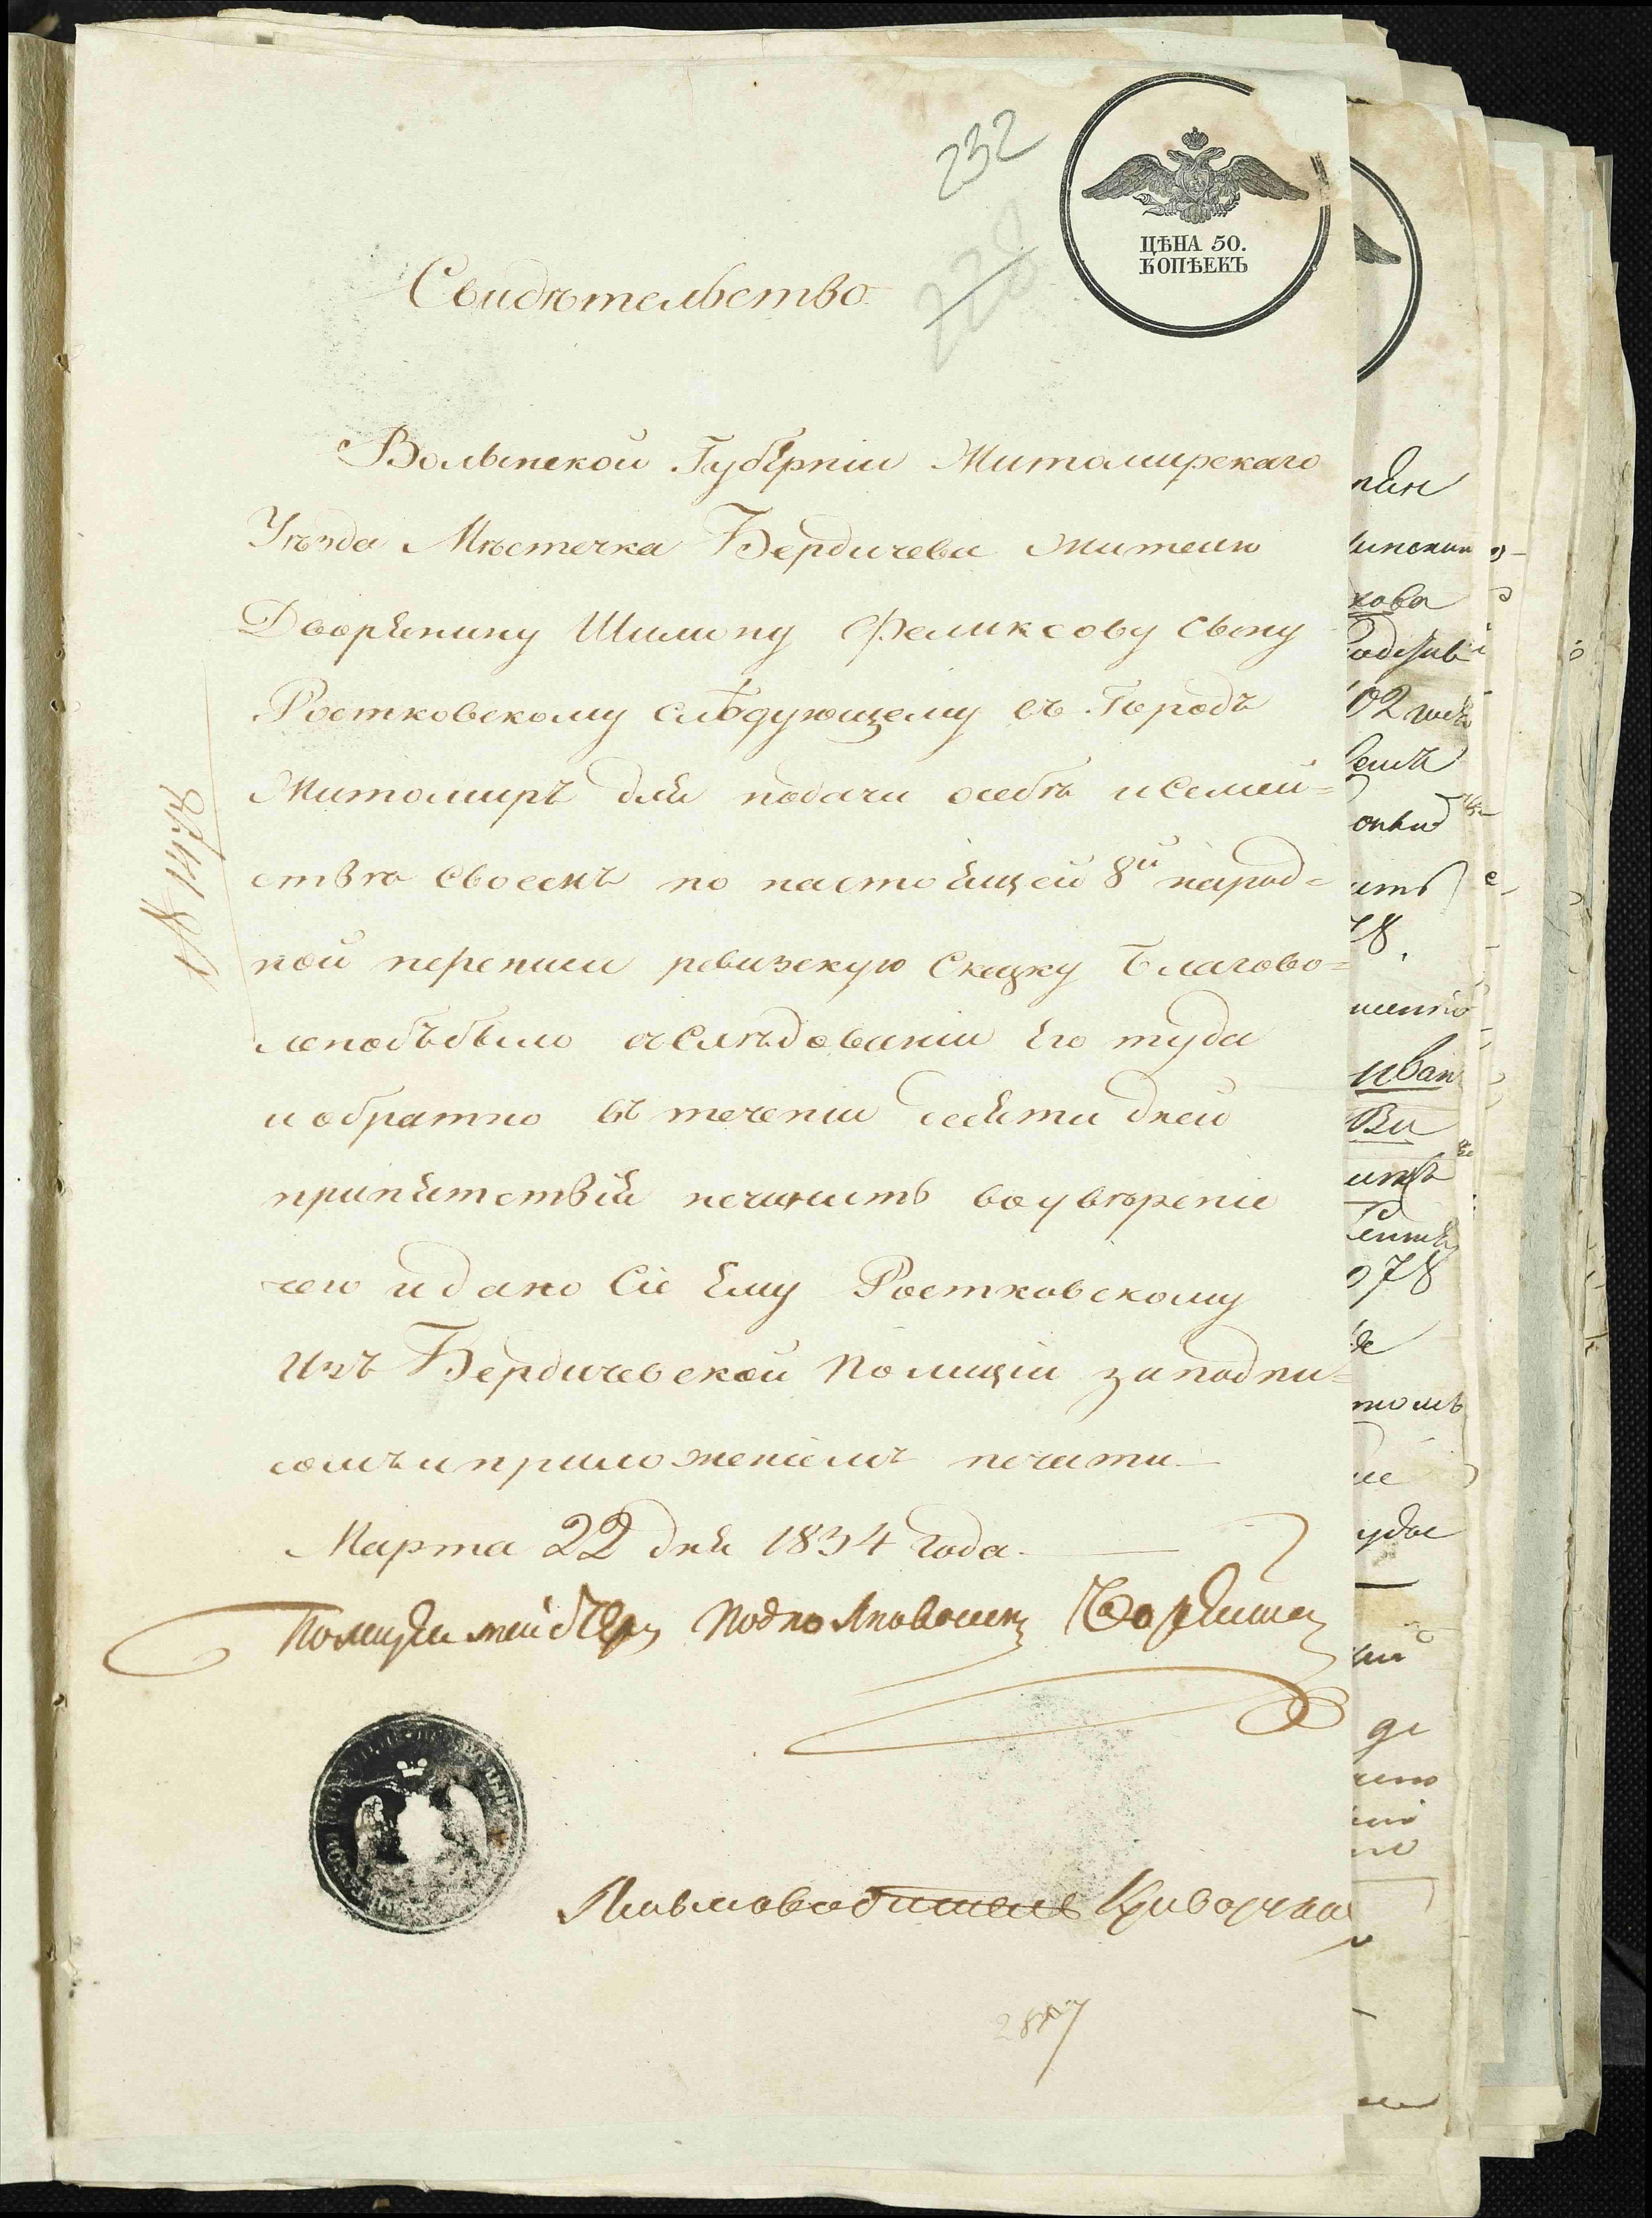 232
ЦѢНА 50.
КОПѢЕКЪ
Свидѣтельство
Волынской Губерніи Житомирскаго
Уѣзда Мѣстечка Бердичева жителю
Дворянину Шимону Феликсову сыну
Ростковскому слѣдующему въ Городъ
Житомиръ для подачи осебѣ исемей=
ствѣ своемъ по настоящей 8й народ=
ной переписи ревизскую Скаску благово=
лено бъ было в слѣдованіи его туда
и обратно въ теченіи десяти дней
припятствій нечинить воувѣреніе
чего и дано Сіе ему Ростковскому
Изъ Бердичевской Полиціи заподпи=
сомъ и приложеніемъ печати.
Марта 22 дня 1834 года.
Полицеймейстеръ Подполковникъ
Письмоводитель
№ 1478